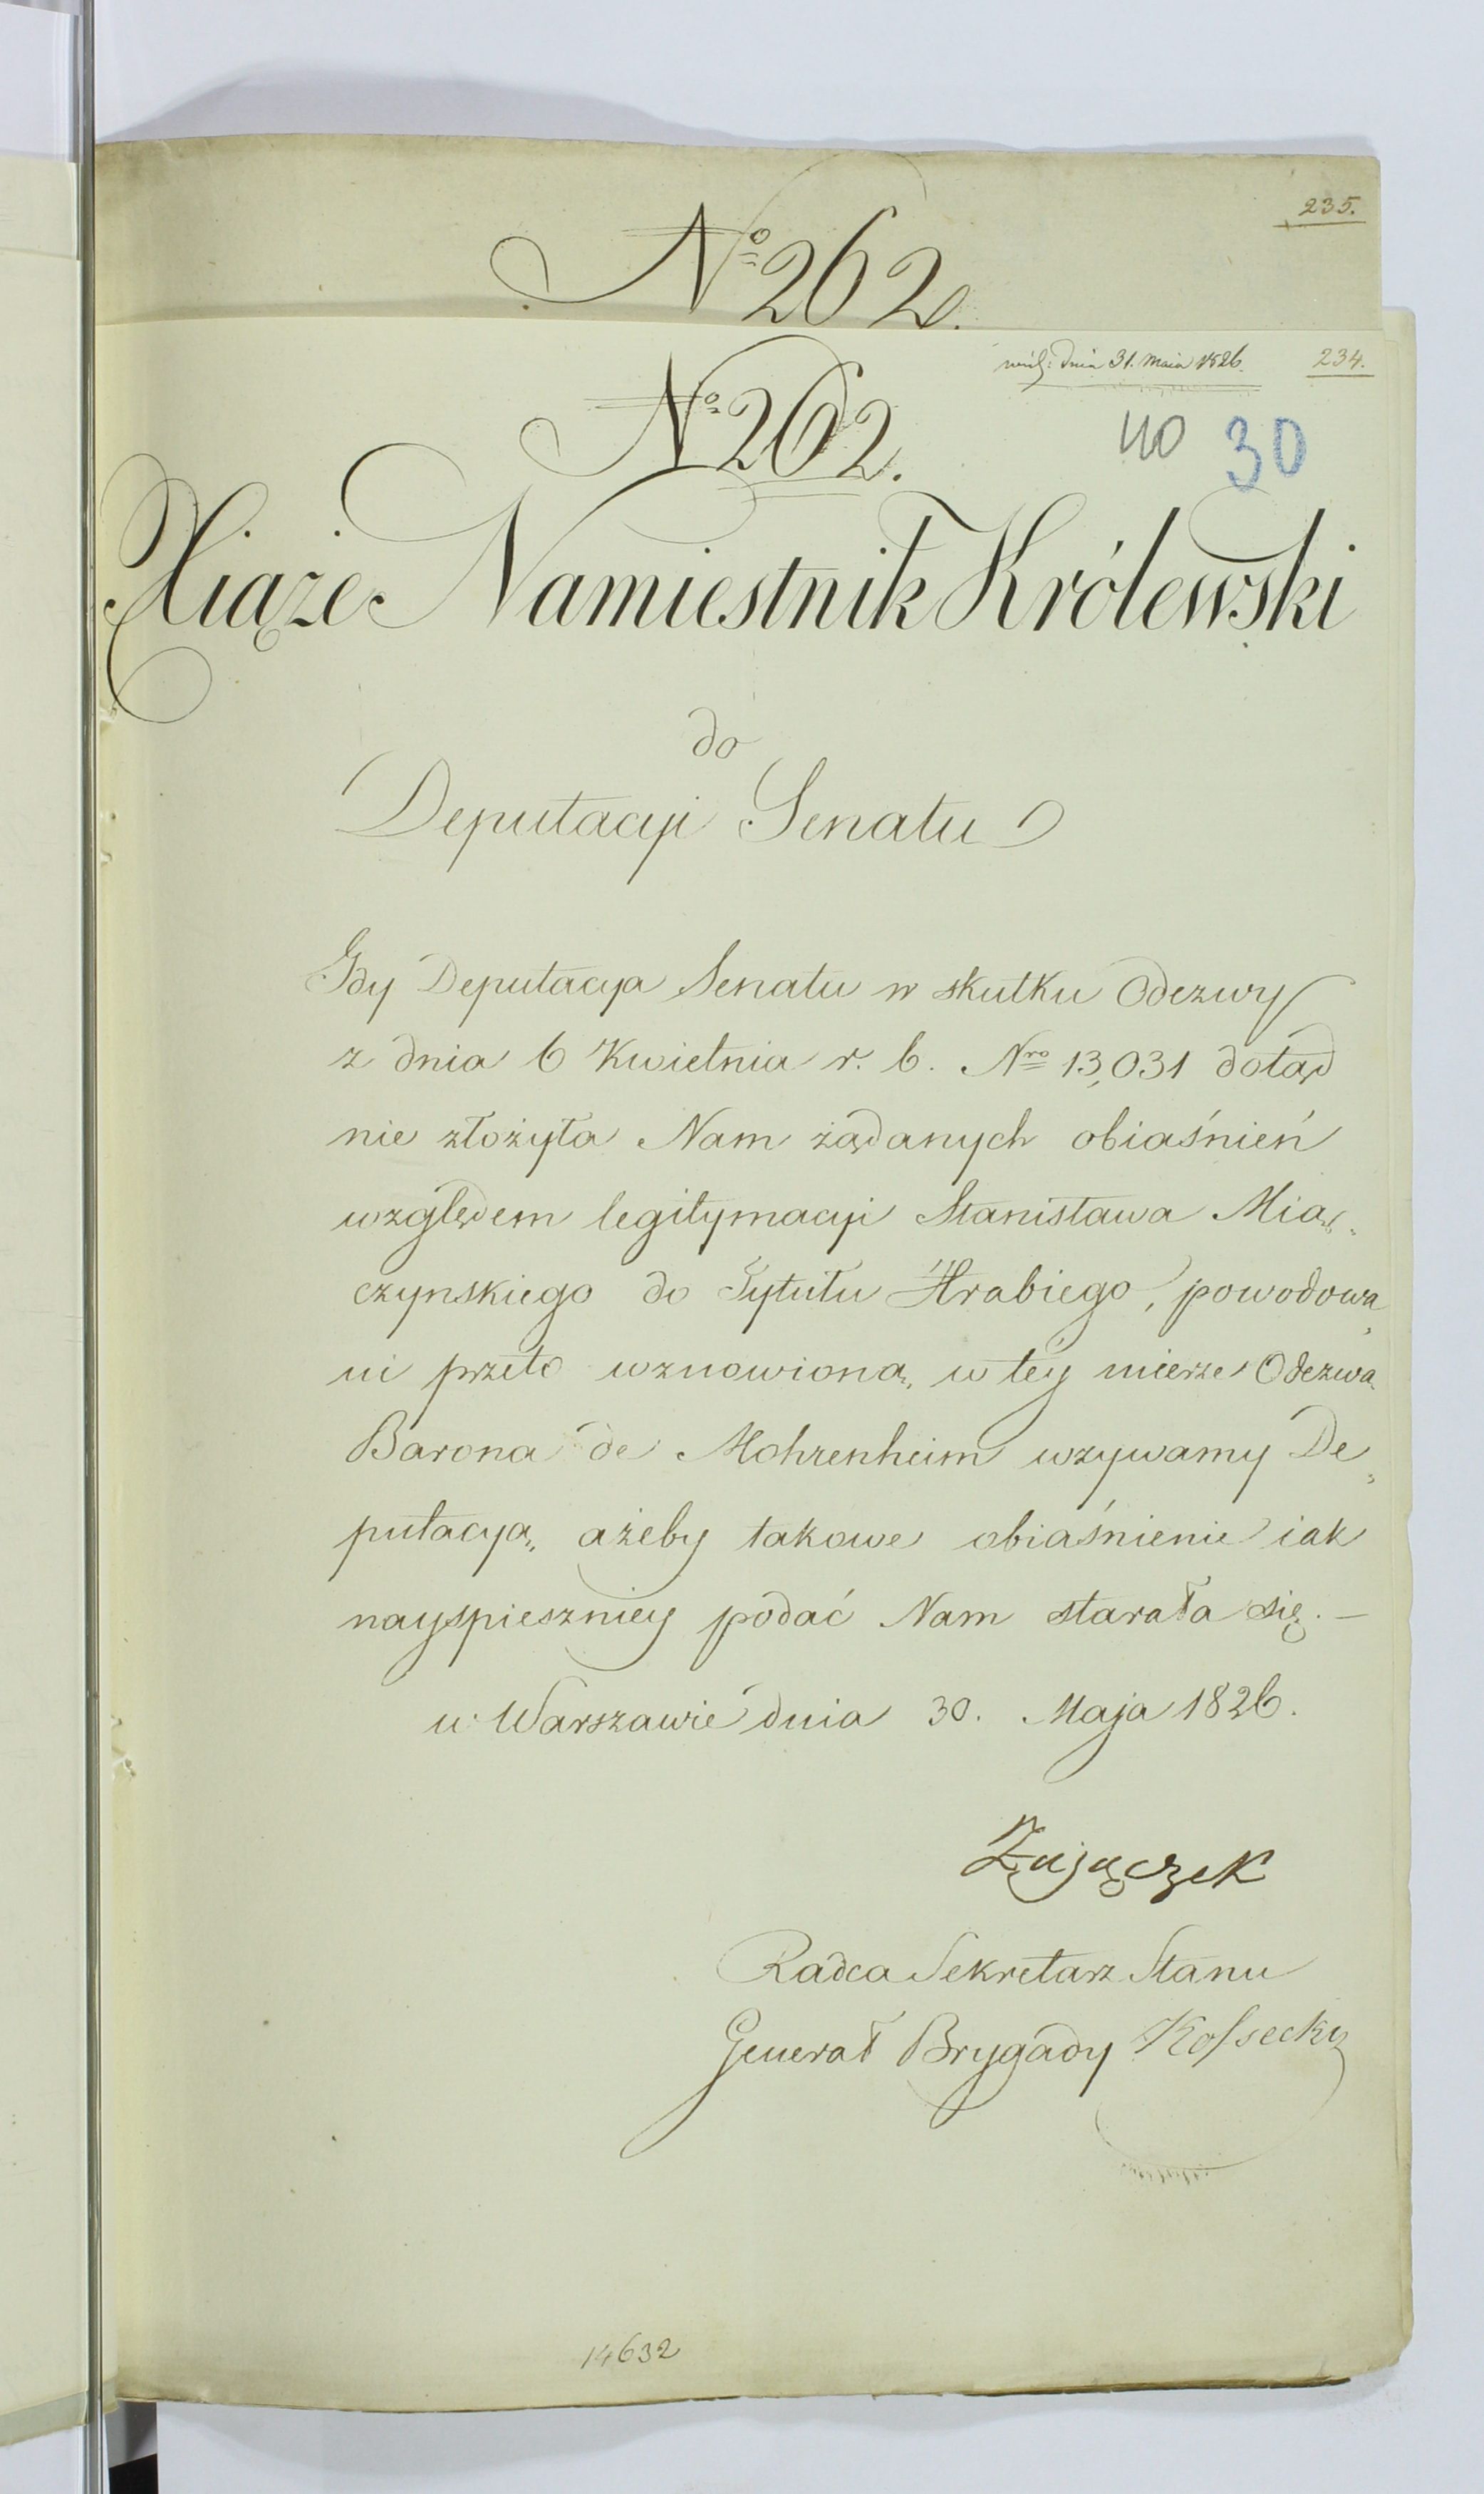 235.
No 262.
dnia 31. Maia 1826.
234.
No 262.
40 30
Xiąże Namiestnik Królewski
do
Deputacyi Senatu
Gdy Deputacya Senatu w skutku Odezwy
z dnia 6 Kwietnia r. b. Nro 13,031 dotąd
nie złożyła Nam żądanych obiaśnień
względem legitymacyi Stanisława Mią„
czynskiego do Tytułu Hrabiego, powodowa„
ni przeto wznowioną w tey mierze Odezwą
Barona de Mohrenheim wzywamy De„
putacyą, ażeby takowe obiaśnienie iak
nayspieszniey podać Nam starała się. —
w Warszawie dnia 30. Maja 1826.
Zajączek
Radca Sekretarz Stanu
Generał Brygady Kossecki
14632